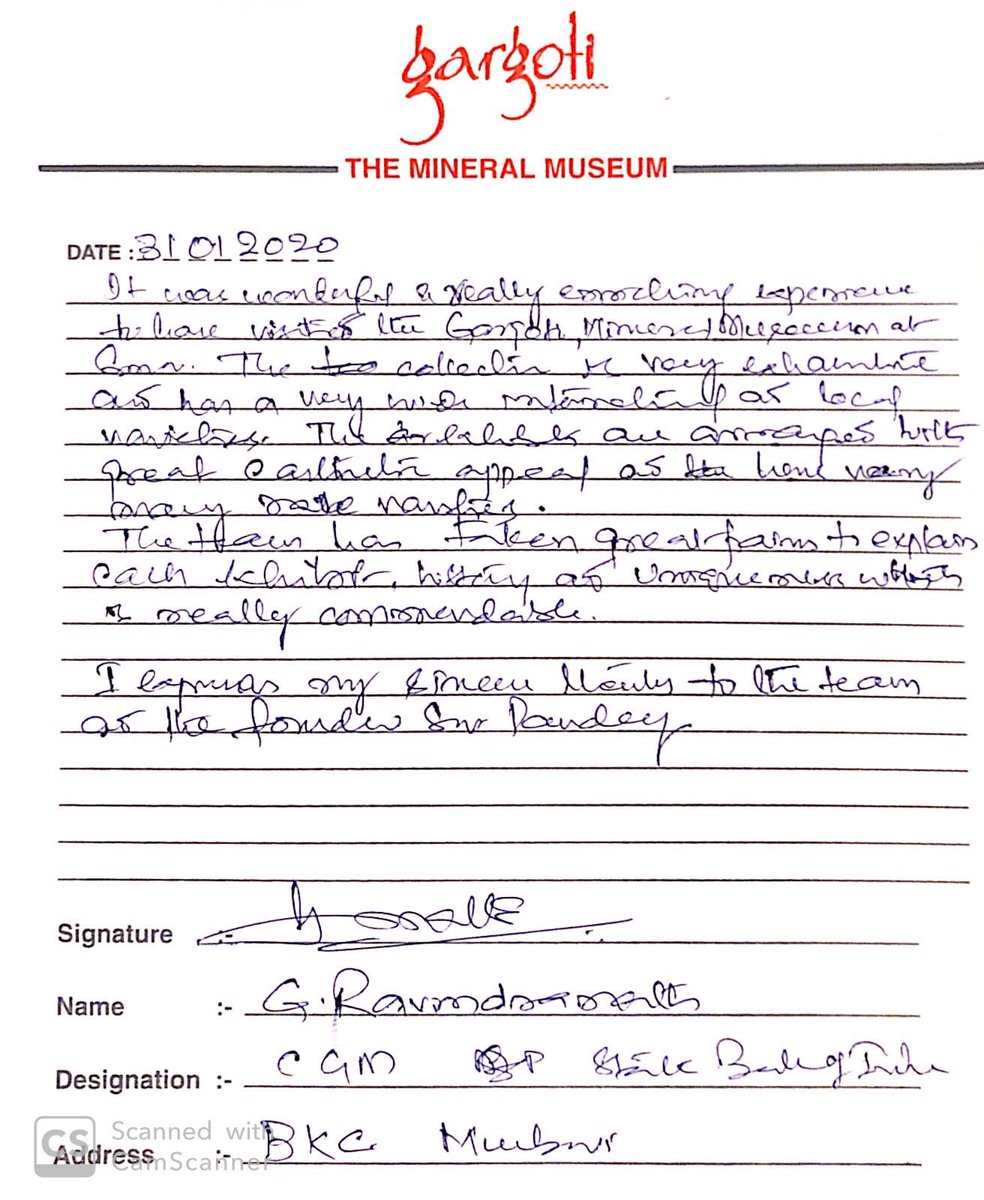 gargoti
THE MINERAL MUSEUM
DATE : 31 01 2020
It was wonderful & really enriching experience
to have visited the Gargoti, Mineral Museum at
The collection is very exhaustive
and has a very wide of local
varieties. The exhibits are arranged with
great appeal and have very
many rare varieties.
The team has taken great pains to explain
each exhibit, history and uniqueness which
is really commendable.
I express my sincere thanks to the team
and the founder Pandey
Signature :-
Name :- G. Ravindranath
Designation :- CGM State Bank of India
Address :- BKC Mumbai
CS Scanned with
CamScanner